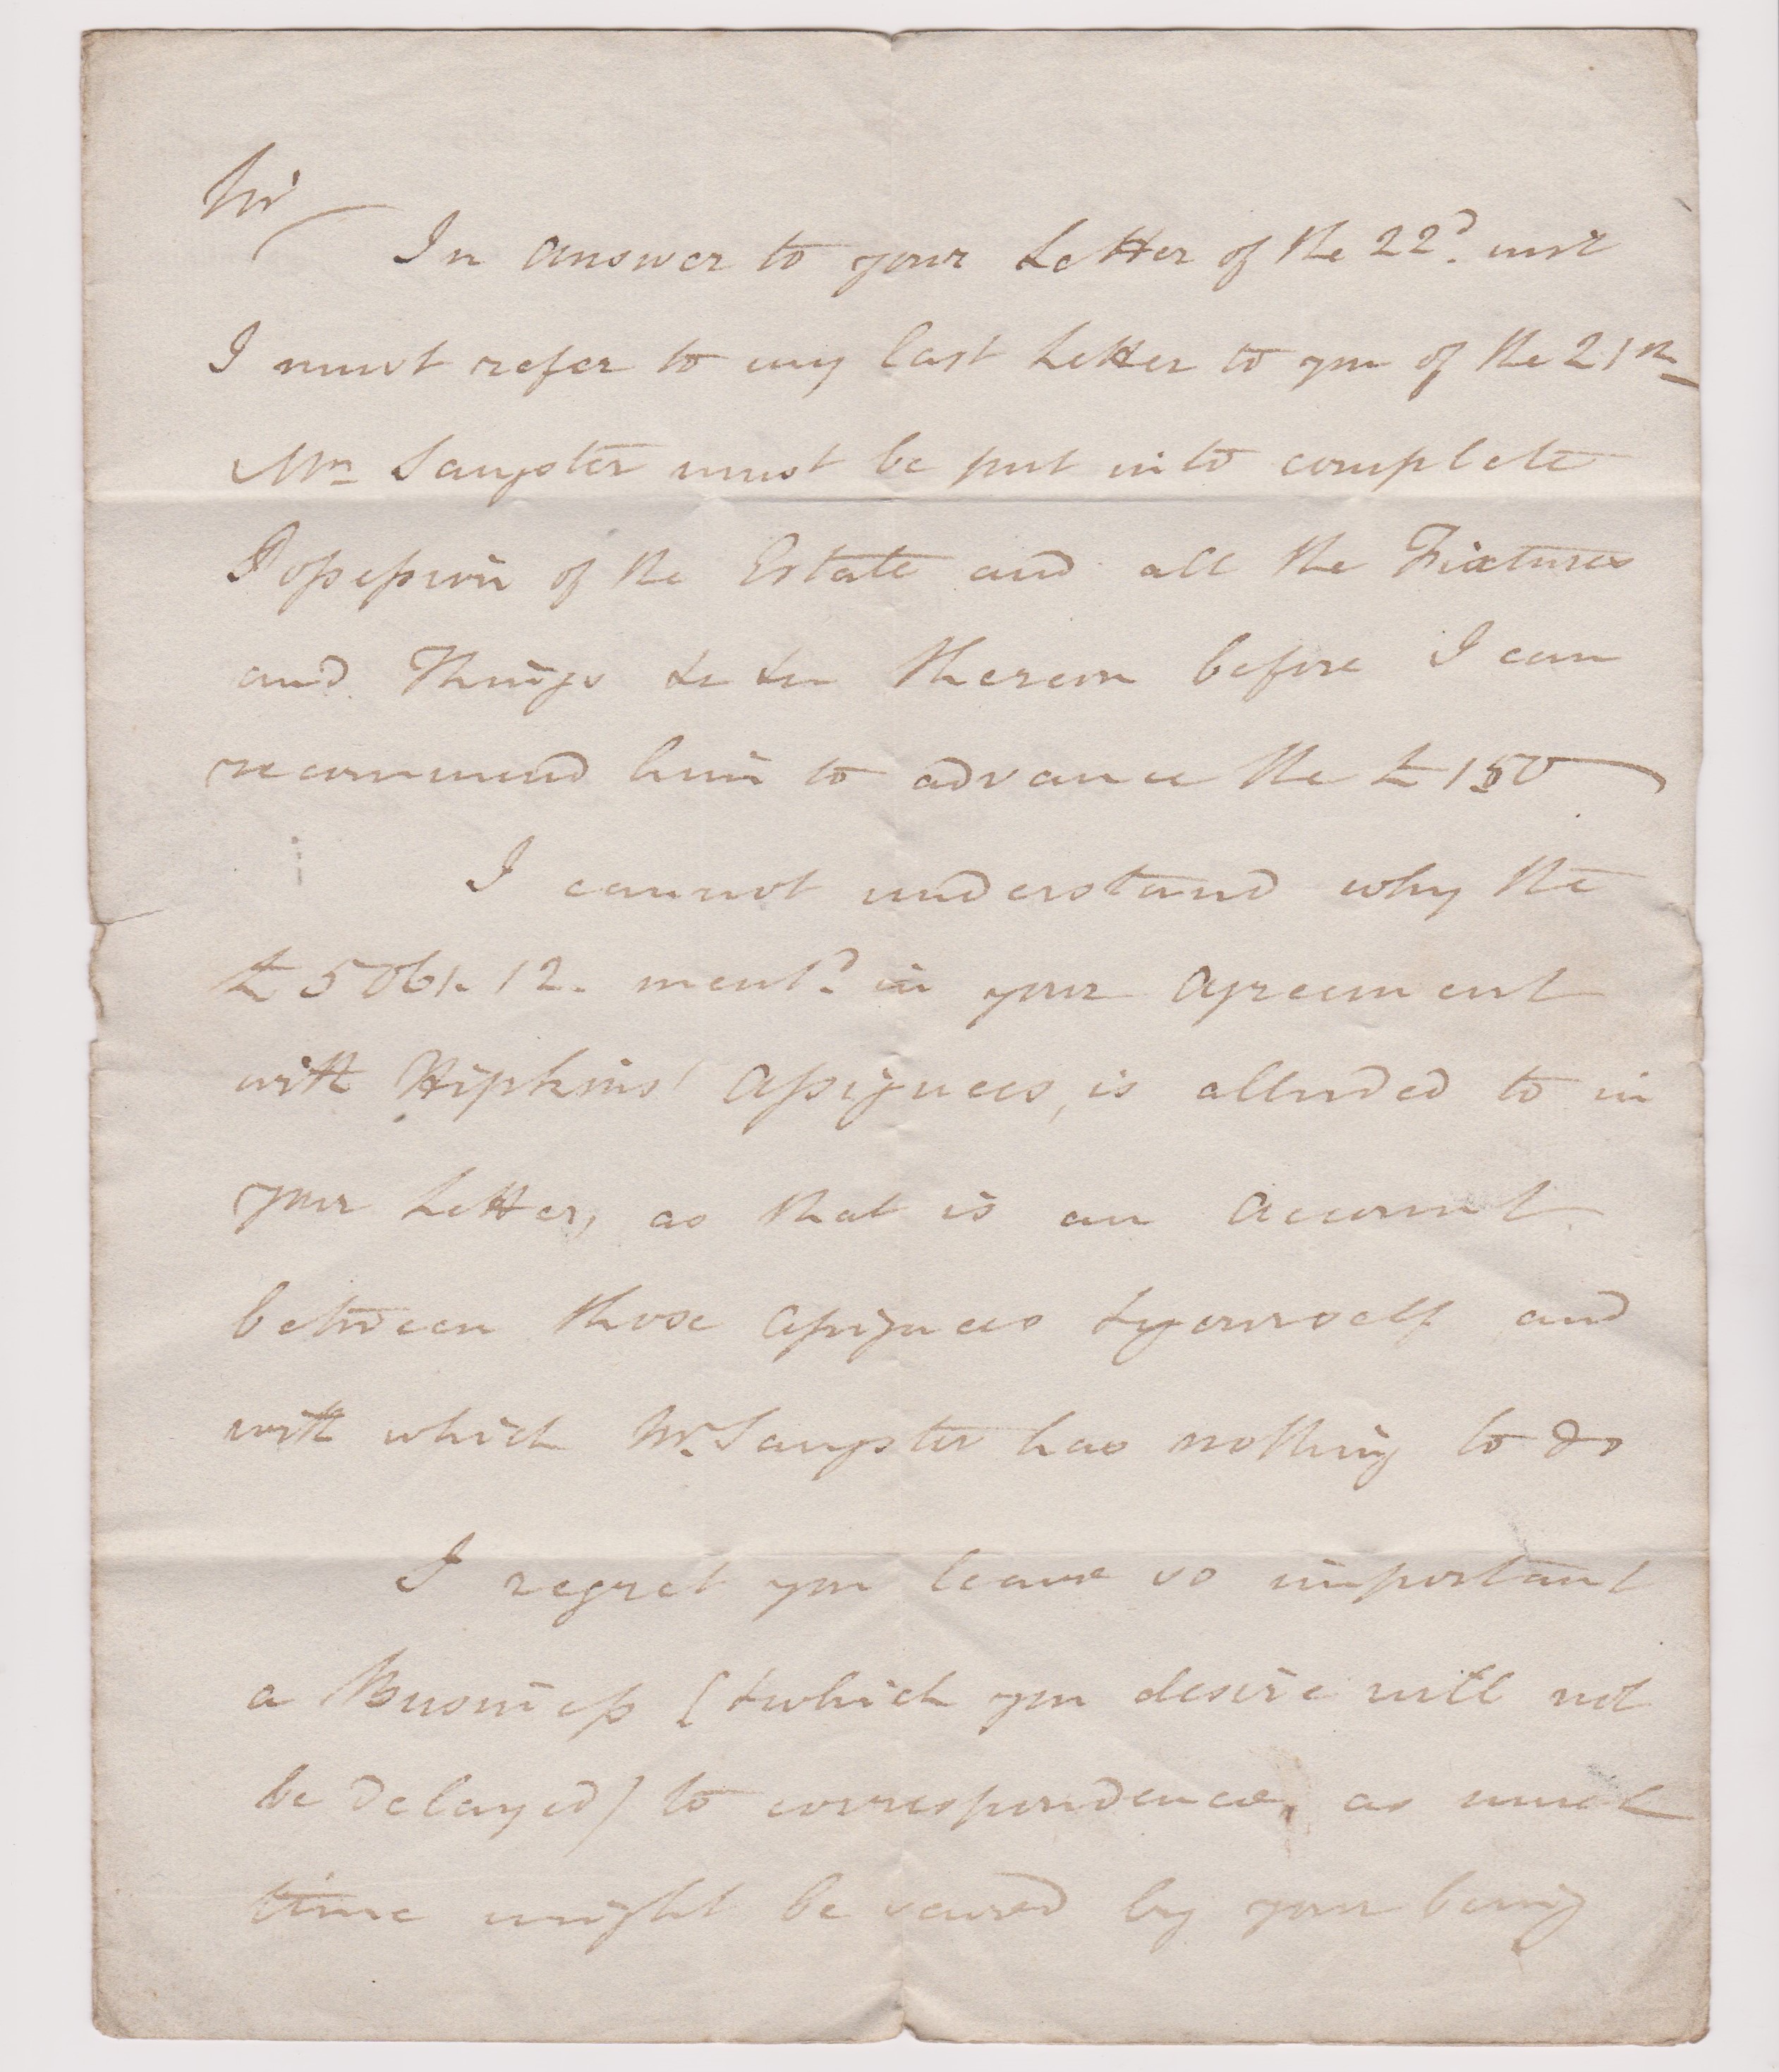 Sir
In answer to your Letter of the 22d. inst
I must refer to my last Letter to you of the 21st
Mr Sangster must be put into complete
Possession of the Estate and all the Fixtures
and Things &c &c therein before I can
recommend him to advance the £150
I cannot understand why the
£5061. 12. mentd. in your agreement
with Hipkins' Assignees, is alluded to in
your Letter, as that is an account
between those assignees & yourself and
with which Mr. Sangster has nothing to do
I regret you leave so important
a Business (& which you desire will not
be delayed) to correspondence, as much
time might be saved by your being